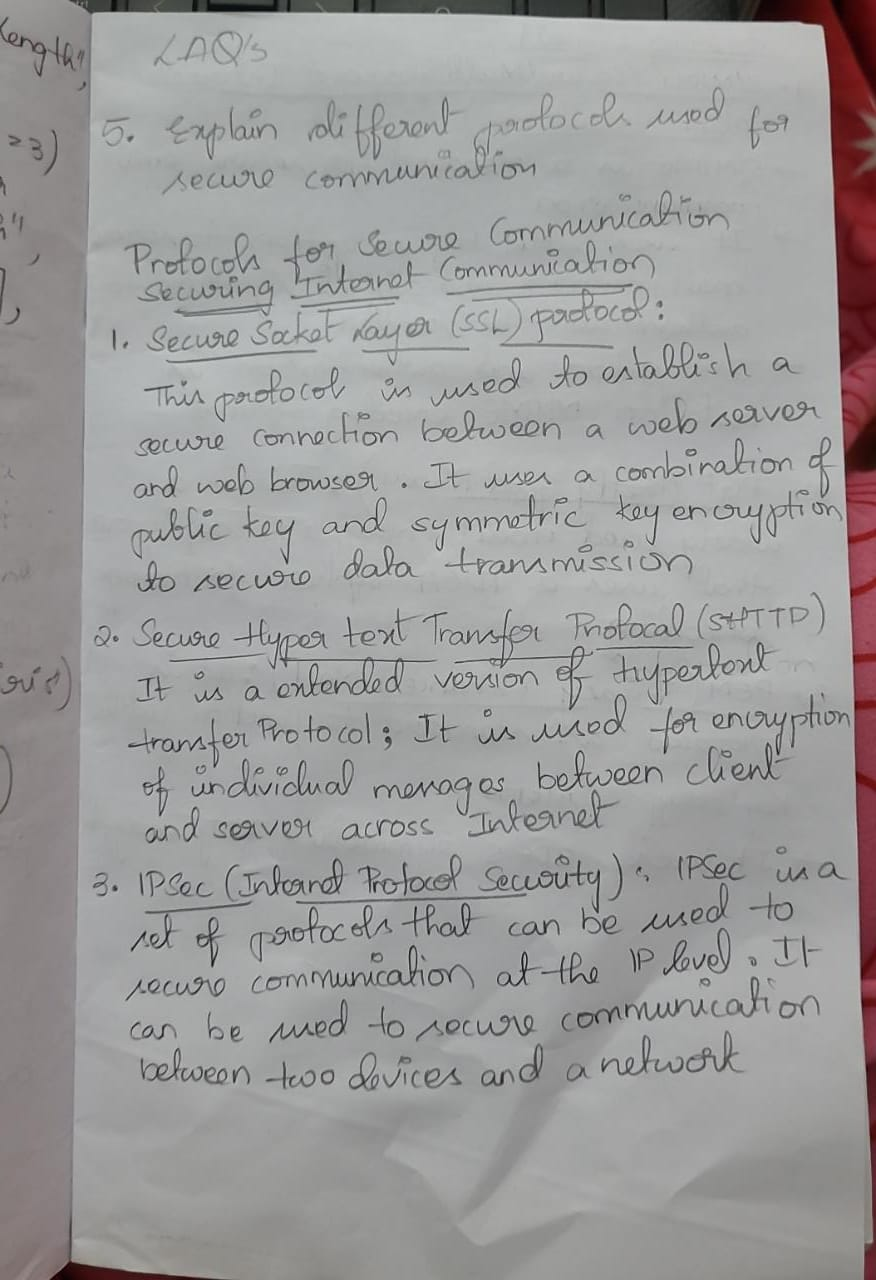 length",
=3)
LAQ's
5. Explain different protocols used for
secure communication
Protocols for Secure Communication
Securing Internet Communication
1. Secure Socket Layer (SSL) protocol:
This protocol is used to establish a
secure connection between a web server
and web browser. It uses a combination of
public key and symmetric key encryption
to secure data transmission
2. Secure Hyper text Transfer Protocal (SHTTP)
It is a extended version of Hypertext
transfer Protocol; It is used for encryption
of individual messages between client
and server across Internet
3. IPSec (Internet Protocol Security): IPSec is a
set of protocols that can be used to
secure communication at the IP level. It
can be used to secure communication
between two devices and a network